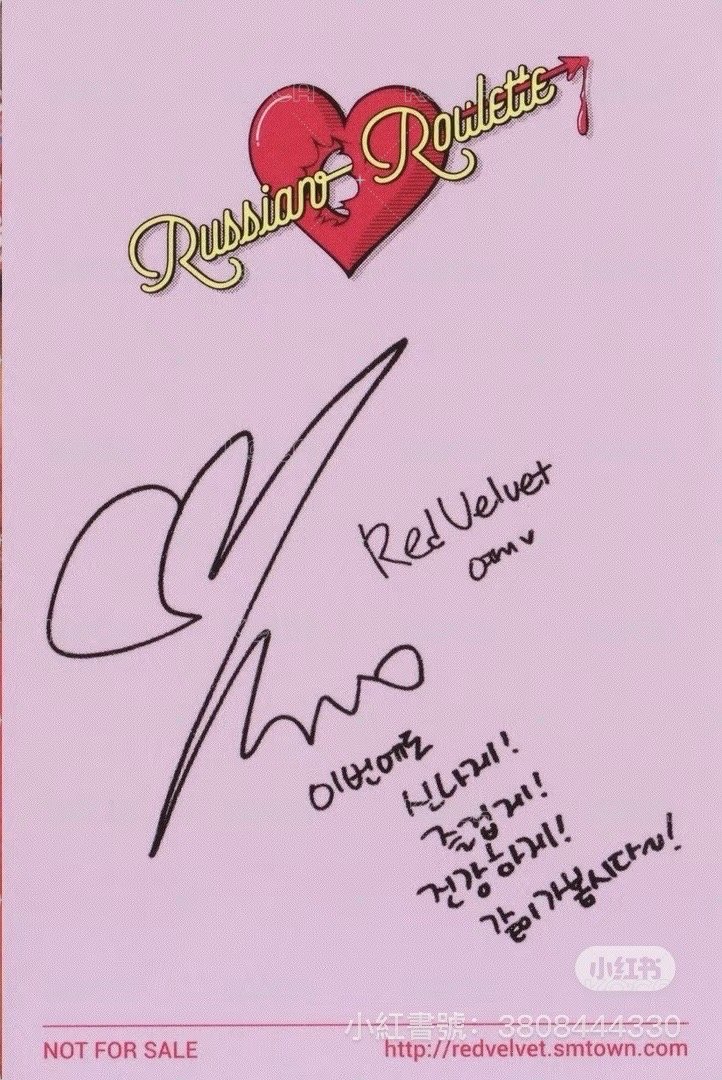 Russian Roulette
Red Velvet
이번에도
신나게!
즐겁게!
건강하게!
같이가봅시다~!
小红书
小紅書號：3808444330
NOT FOR SALE
http://redvelvet.smtown.com